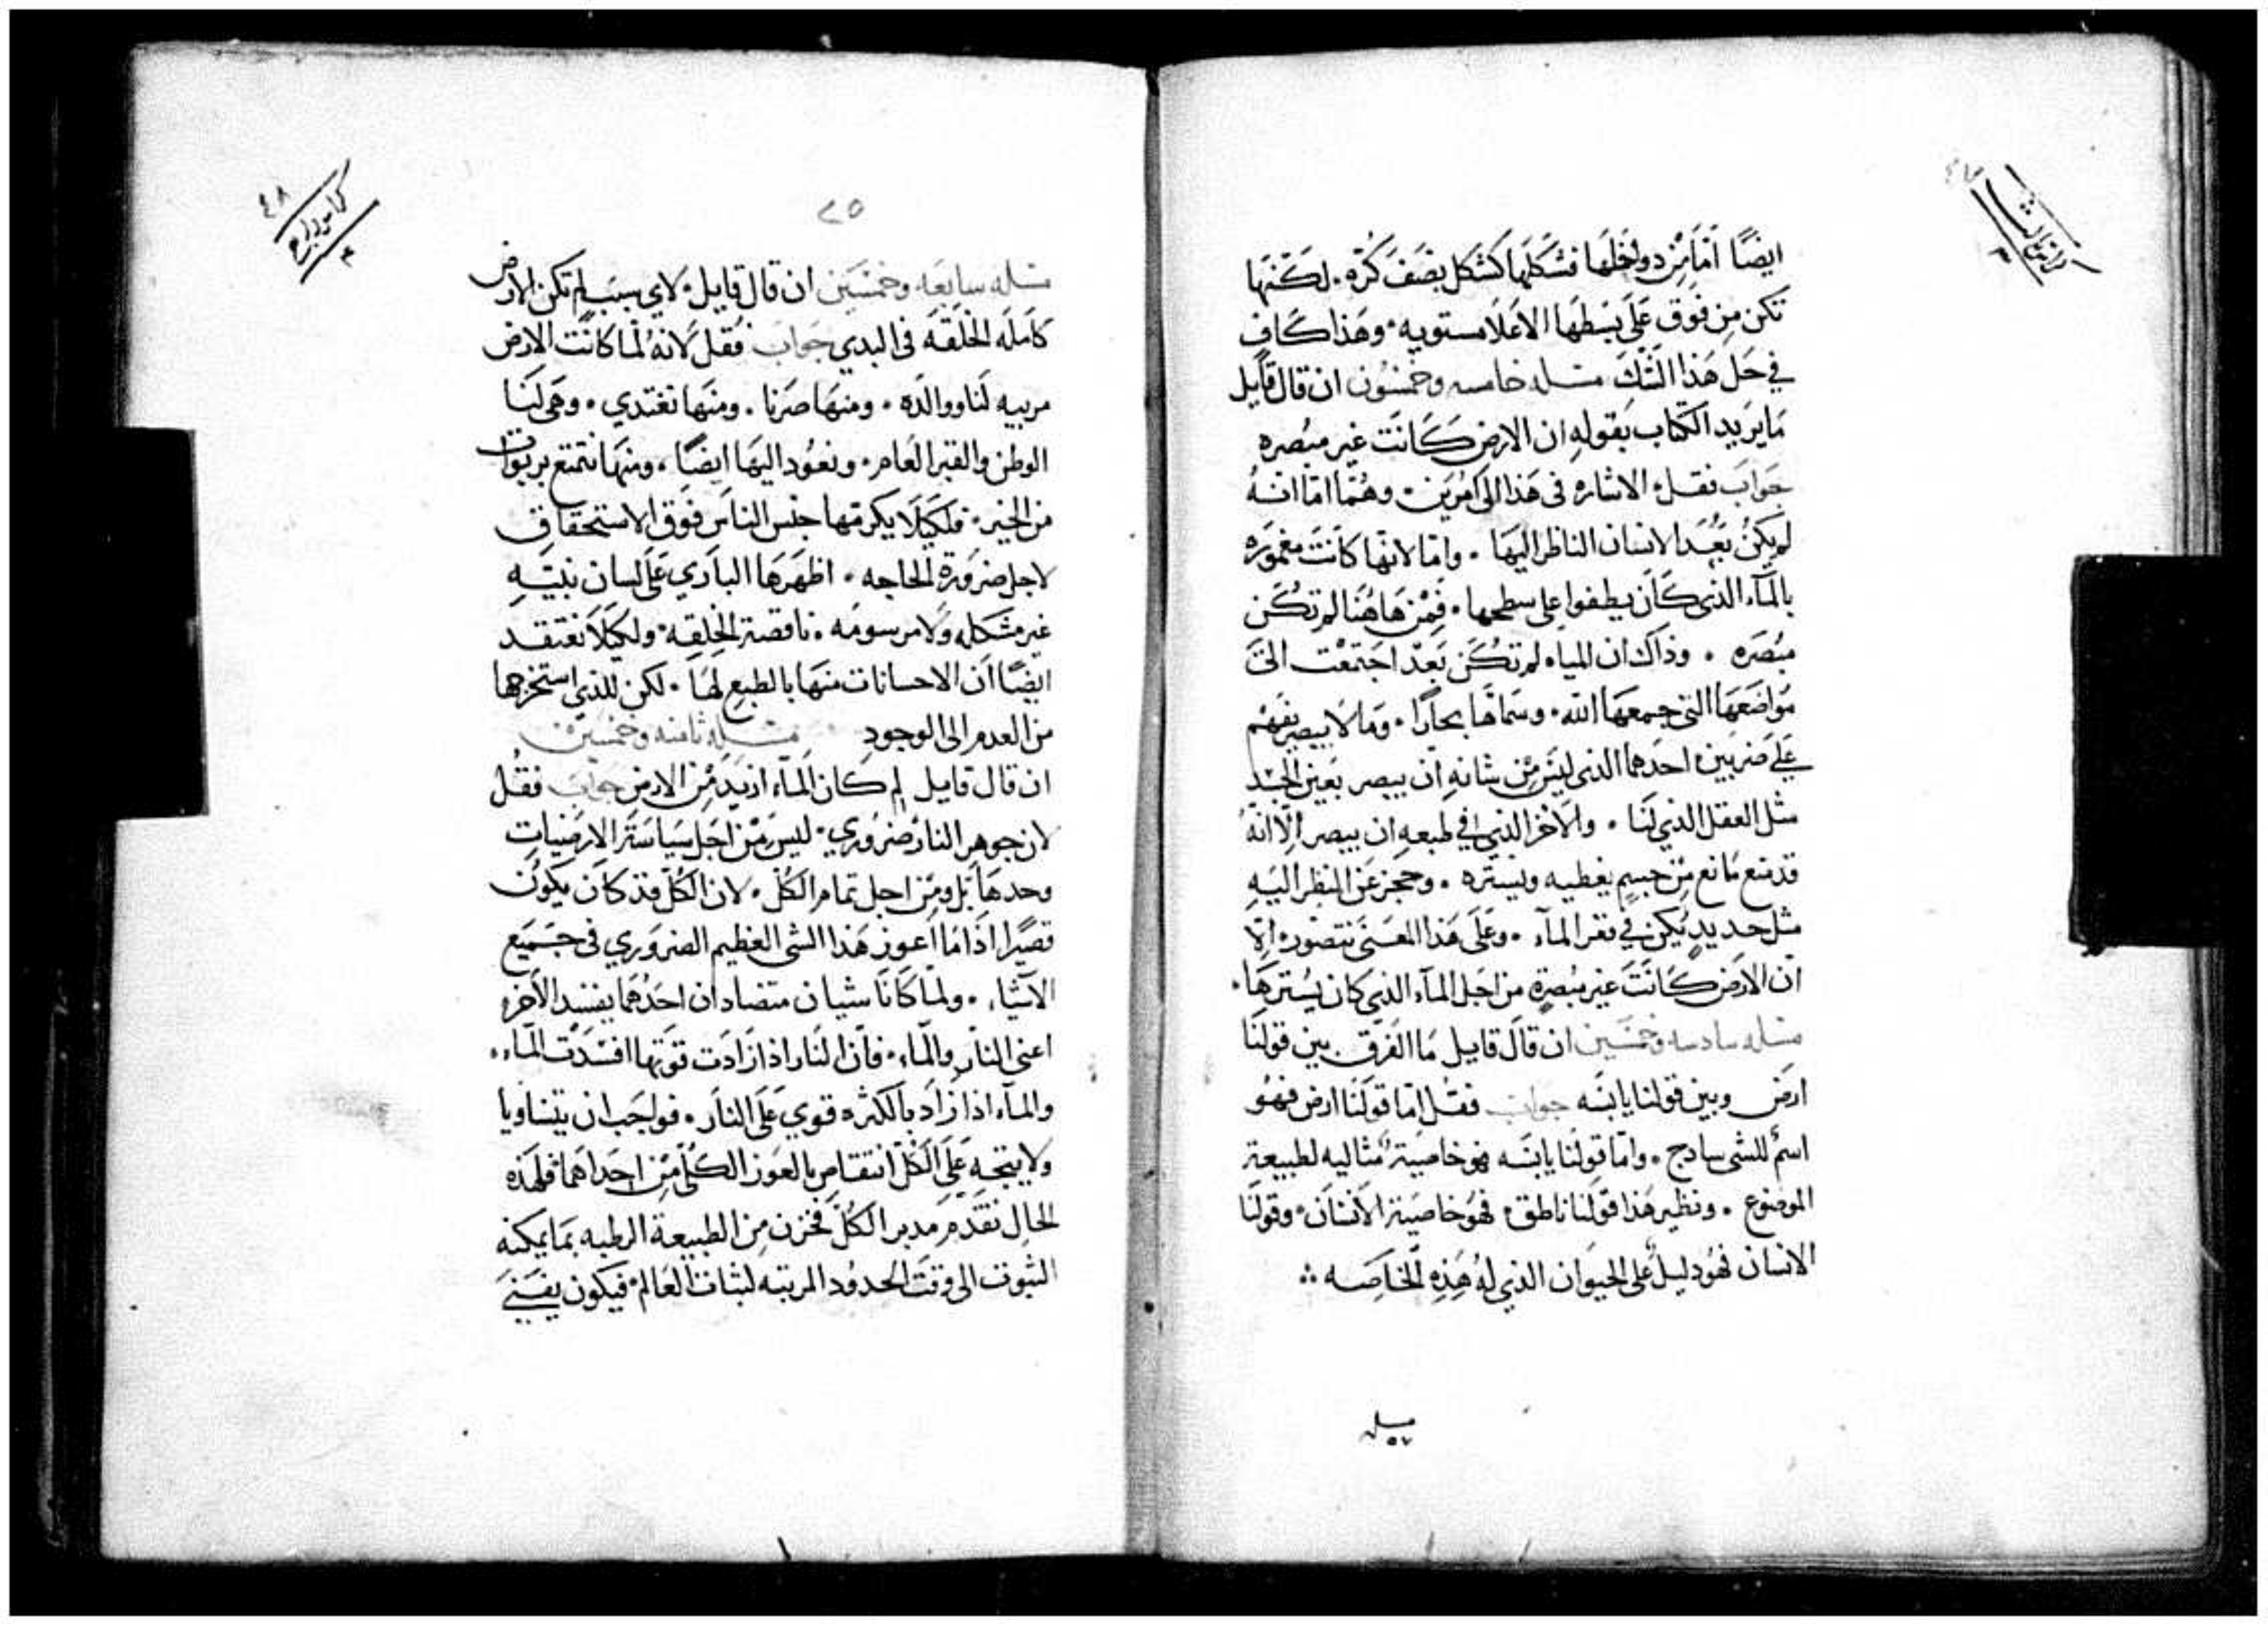 ايضًا اما من دواخلها فشكلها كشكل نصف كره. لكنها
تكن من فوق على بسطها الاعلا مستويه. وهذا كاف
في حل هذا الشك مسله خامسه وخمسون ان قال قايل
ما يريد الكتاب بقوله ان الارض كانت غير مبصره
جواب فقل الاشاره في هذا الى امرين. وهما اما انه
لم يكن بعد الانسان الناظر اليها. واما لانها كانت مغموره
بالمآء الذي كان يطفوا على سطحها. فمن هاهنا لم تكن
مبصره. وذاك ان المياه لم تكن بعد اجتمعت الى
مواضعها التي جمعها الله. وسماها بحارًا. وما لا يبصر يفهم
على ضربين احدهما الذي ليس من شانه ان يبصر بعين الجسد
مثل العقل الذي لنا. والاخر الذي في طبعه ان يبصر الّا انه
قد منع مانع من جسم يغطيه ويستره. وحجز عن النظر اليه
مثل حديد يكن في قعر المآء. وعلى هذا المعنى نتصور الا
ان الارض كانت غير مبصرة من اجل المآء الذي كان يسترها.
مسله سادسه وخمسين ان قال قايل ما الفرق بين قولنا
ارض وبين قولنا يابسه جواب فقل اما قولنا ارض فهو
اسم للشى سادج. واما قولنا يابسه فهو خاصية مثاليه لطبيعة
الموضوع. ونظير هذا قولنا ناطق فهو خاصية الانسان وقولنا
الانسان فهو دليل على الحيوان الذي له هذه الخاصه
مسله
٥٧
٤٨
كراس رابع
٤
٢٥
مسله سابعه وخمسين ان قال قايل لاي سبب لم تكن الارض
كامله الخلقه في البدي جواب فقل لانه لما كانت الارض
مربيه لنا ووالده. ومنها صرنا. ومنها نغتدي. وهى لنا
الوطن والقبر العام. ونعود اليها ايضًا، ومنها نتمتع بربوات
من الخير. فلكيلا يكرمها جنس الناس فوق الاستحقاق
لاجل ضرورة الحاجه. اظهرها الباري على لسان نبيه
غير مشكله ولا مرسومه. ناقصة الخلقه. ولكيلا نعتقد
ايضًا ان الاحسانات منها بالطبع لها. لكن للذي استخرجها
من العدم الى الوجود مسله ثامنه وخمسين
ان قال قايل لم كان المآء ازيد من الارض جواب فقل
لان جوهر النار ضروري. ليس من اجل سياسة الارضيات
وحدها بل ومن اجل تمام الكل. لان الكل قد كان يكون
قصيرًا اذا ما اعوز هذا الشى العظيم الضروري في جميع
الاشيا. ولما كانا شيان متضادان احدهما يفسد الاخر
اعني النار والماء. فان النار اذا زادت قوتها افسدت الماء.
والمآء اذا زاد بالكثره قوي على النار. فواجب ان يتساويا
ولا يتجه على الكل انتقاص بالعوز الكلي من احداهما فلهذه
الحال تقدم مدبر الكل فخزن من الطبيعة الرطبه بما يمكنه
الثبوت الى وقت الحدود المرتبه لثبات العالم فيكون يفنى